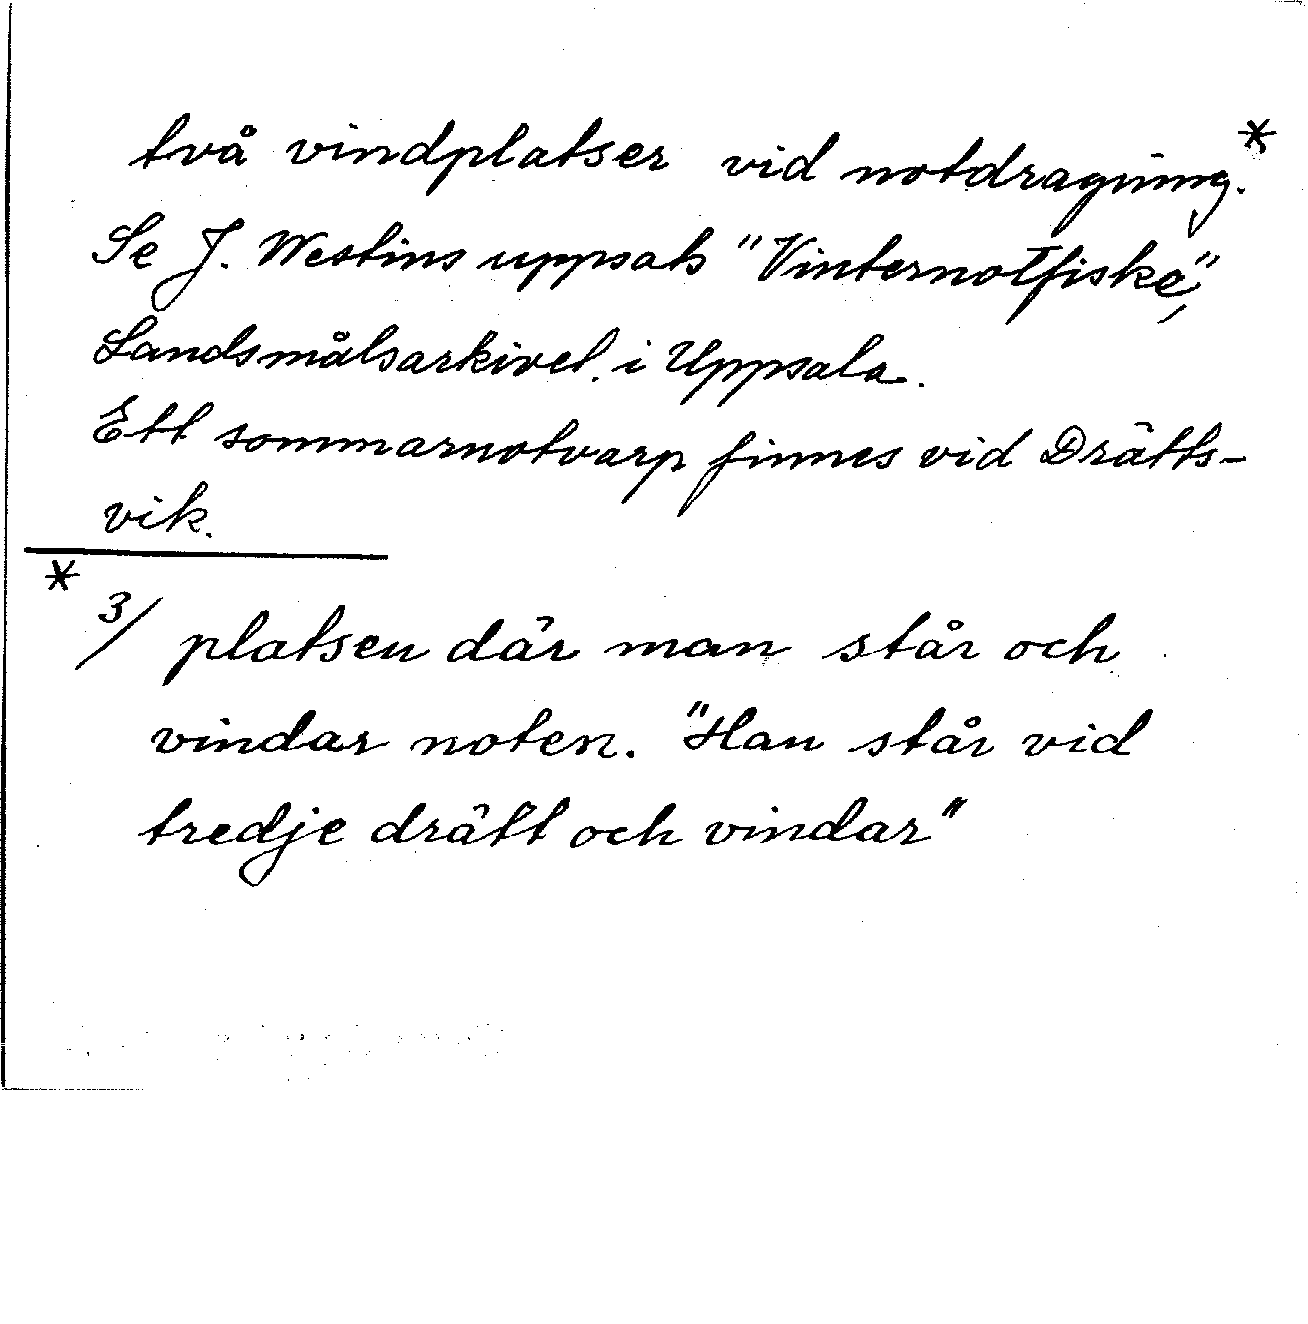 två vindplatser vid notdragning.*
Se J. Westins uppsats "Vinternotfiske",
Landsmålsarkivet. i Uppsala.
Ett sommarnotvarp finnes vid Drätts-
vik.
* 3/ platsen där man står och
vindar noten. "Han står vid
tredje drätt och vindar"